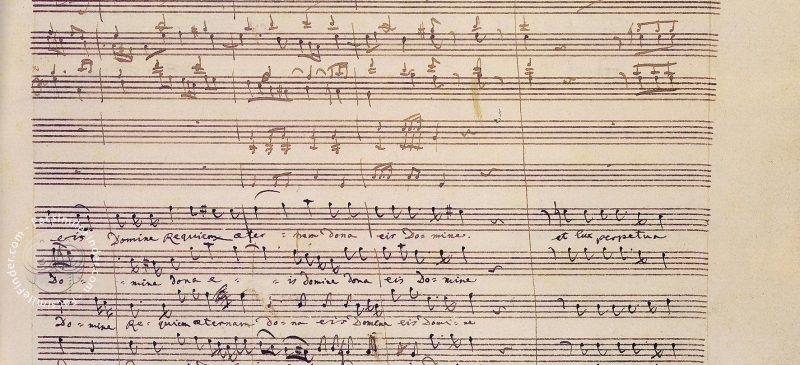 eis Domine Requiem æter - nam dona eis Do - mine. et lux perpetua
Do - - mine dona e - - is domine dona eis Do - mine
Do - mine Re - quiem æternam do - na eis Domine eis Domi - ne